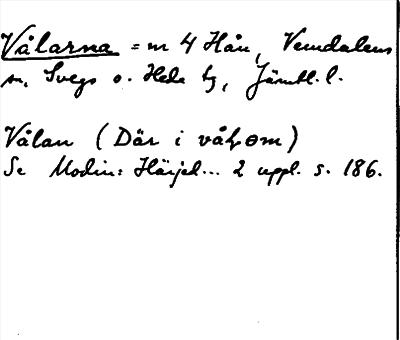 Vålarna = m 4 Hån, Vemdalens
sn, Svegs o. Hede tg, Jämtl. l.
Vålan (Där i våɫom)
Se Modin: Härjed... 2 uppl. s. 186.